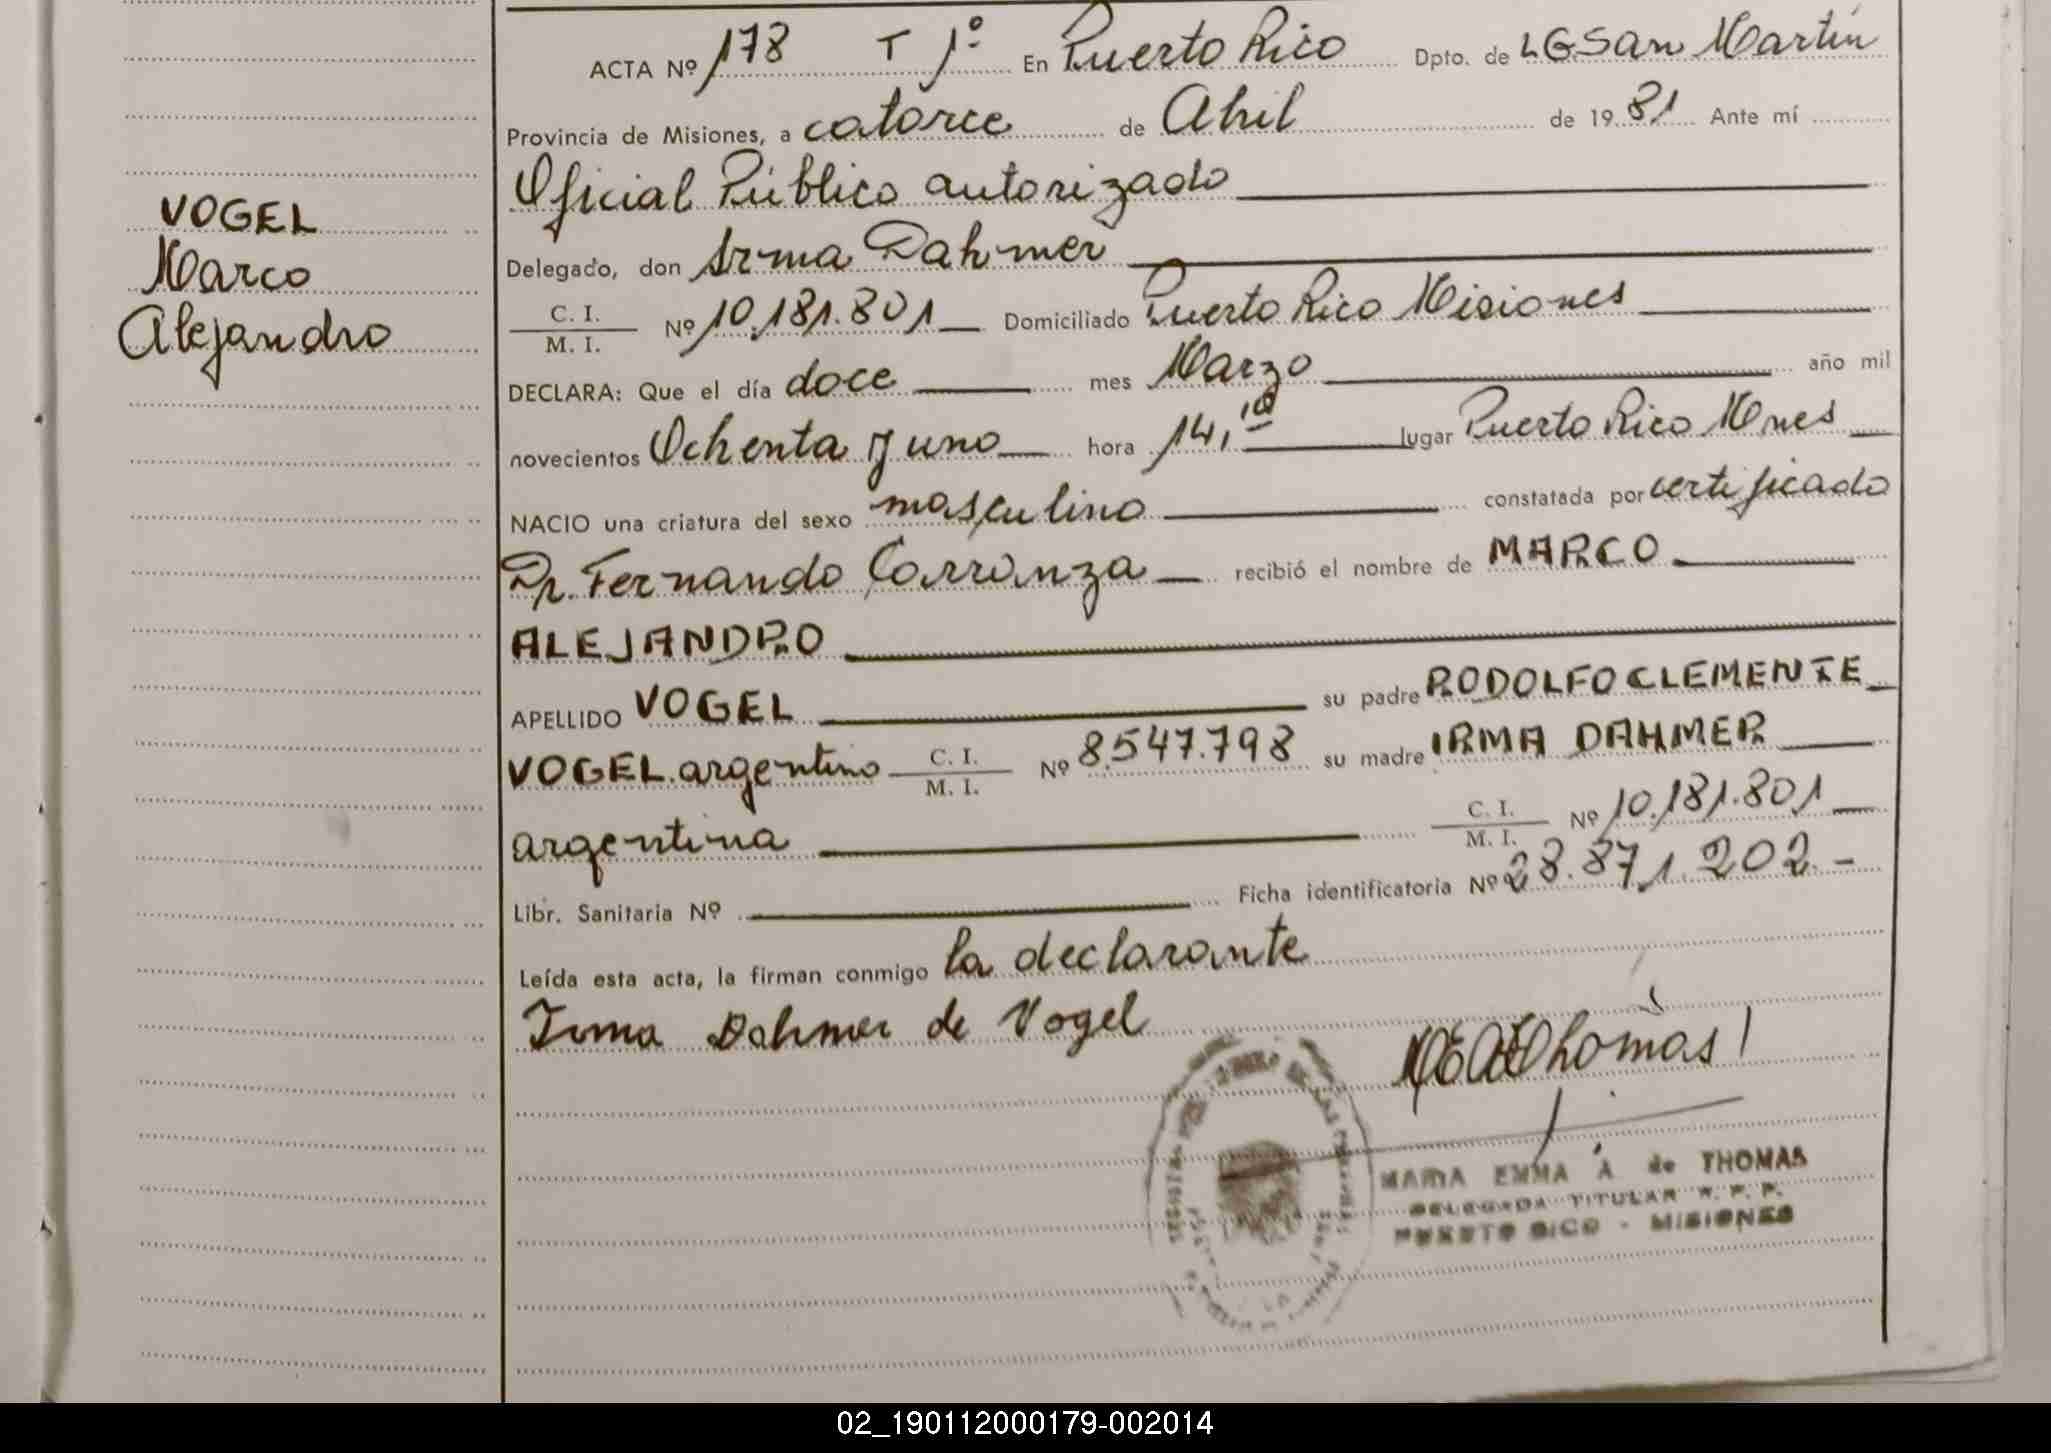 ACTA Nº 178 T 1º En Puerto Rico Dpto. de LGSan Martín
Provincia de Misiones, a catorce de Abril de 1981 Ante mí
Oficial Público autorizado
VOGEL
Marco
Alejandro
Delegado, don Irma Dahmer
C. I.
M. I. Nº 10.181.801 Domiciliado Puerto Rico Misiones
DECLARA: Que el día doce mes Marzo año mil
novecientos Ochenta y uno hora 14,10 lugar Puerto Rico Mnes
NACIO una criatura del sexo masculino constatada por certificado
Dr. Fernando Carranza recibió el nombre de MARCO
ALEJANDRO
APELLIDO VOGEL su padre RODOLFO CLEMENTE
VOGEL argentino C. I.
M. I. Nº 8.547.798 su madre IRMA DAHMER
argentina C. I.
M. I. Nº 10.181.801
Libr. Sanitaria Nº Ficha identificatoria Nº 28.871.202.-
Leída esta acta, la firman conmigo la declarante
Irma Dahmer de Vogel
MEAdeThomas
MARIA EMMA A de THOMAS
DELEGADA TITULAR R. P. P.
PUERTO RICO - MISIONES
02_190112000179-002014